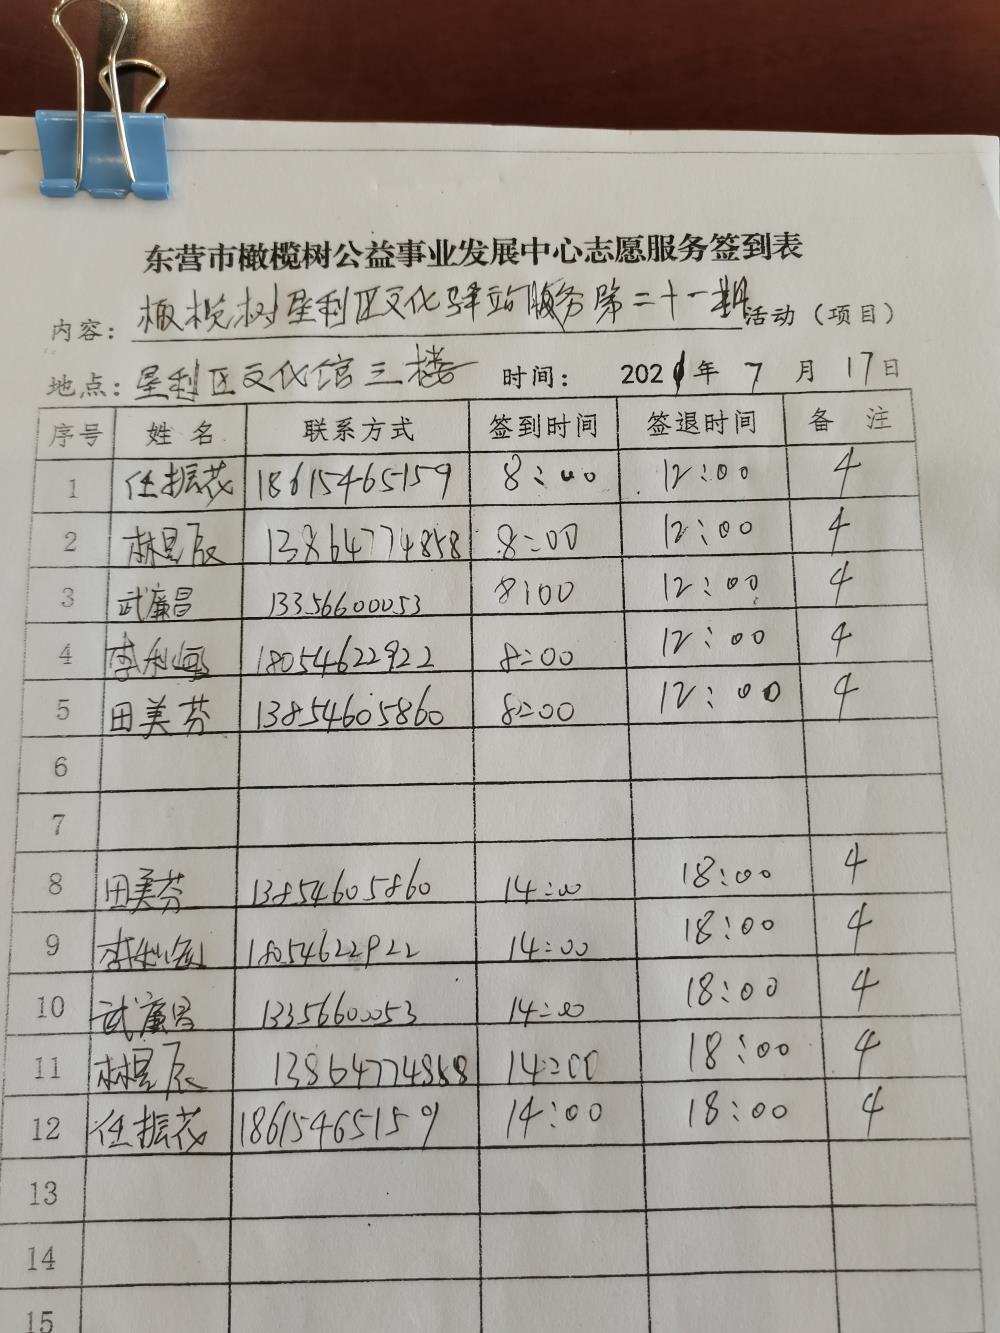 东营市橄榄树公益事业发展中心志愿服务签到表
内容：橄榄树垦利区文化驿站服务第二十一期活动（项目）
地点：垦利区文化馆三楼 时间： 2021年 7 月 17日
序号 姓名 联系方式 签到时间 签退时间 备 注
1 任振花 18615465159 8:00 12:00 4
2 林昱辰 13864774858 8:00 12:00 4
3 武廉昌 13356600053 8:00 12:00 4
4 李利 18054622922 8:00 12:00 4
5 田美芬 13854605860 8:00 12:00 4
6
7
8 田美芬 13854605860 14:00 18:00 4
9 李利 18054622922 14:00 18:00 4
10 武廉昌 13356600053 14:00 18:00 4
11 林昱辰 13864774858 14:00 18:00 4
12 任振花 18615465159 14:00 18:00 4
13
14
15